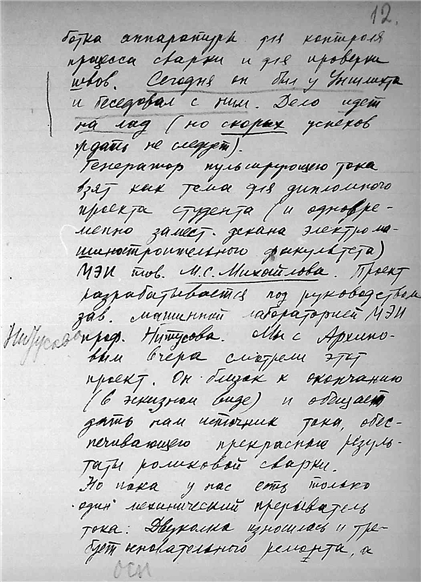 12.
ботка аппаратуры для контроля
процесса сварки и для проверки
швов. Сегодня он был у Уншлихта
и беседовал с ним. Дело идет
на лад (но скорых успехов
ждать не следует).
Генератор пульсирующего тока
взят как тема для дипломного
проекта студента (и одновре-
менно замест. декана электрома-
шиностроительного факультета)
МЭИ тов. М.С. Михайлова. Проект
разрабатывается под руководством
зав. машинной лабораторией МЭИ
проф. Нитусова. Мы с
вым вчера смотрели этот
проект. Он близок к окончанию
(в эскизном виде) и обещает
дать нам источник тока, обес-
печивающего прекрасные резуль-
таты роликовой сварки.
Но пока у нас есть только
один механический прерыватель
тока: Двуколка износилась и тре-
бует основательного ремонта, а
осн